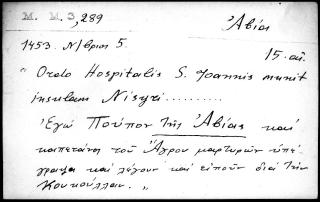 M. M. 3, 289
Ἀβίας
1453. Ν/βριος 5.
15. αἰ.
"Ordo Hospitalis S. Joannis munit
insulam Nisyri..........
Ἐγὼ Πούπον τῆς Ἀβίας καὶ
καπετάνιος τοῦ Ἄγρου μαρτυρῶν ὑπέ-
γραψα καὶ λέγουν καὶ εἰποῦν διὰ τὴν
Κουκούλλαν."